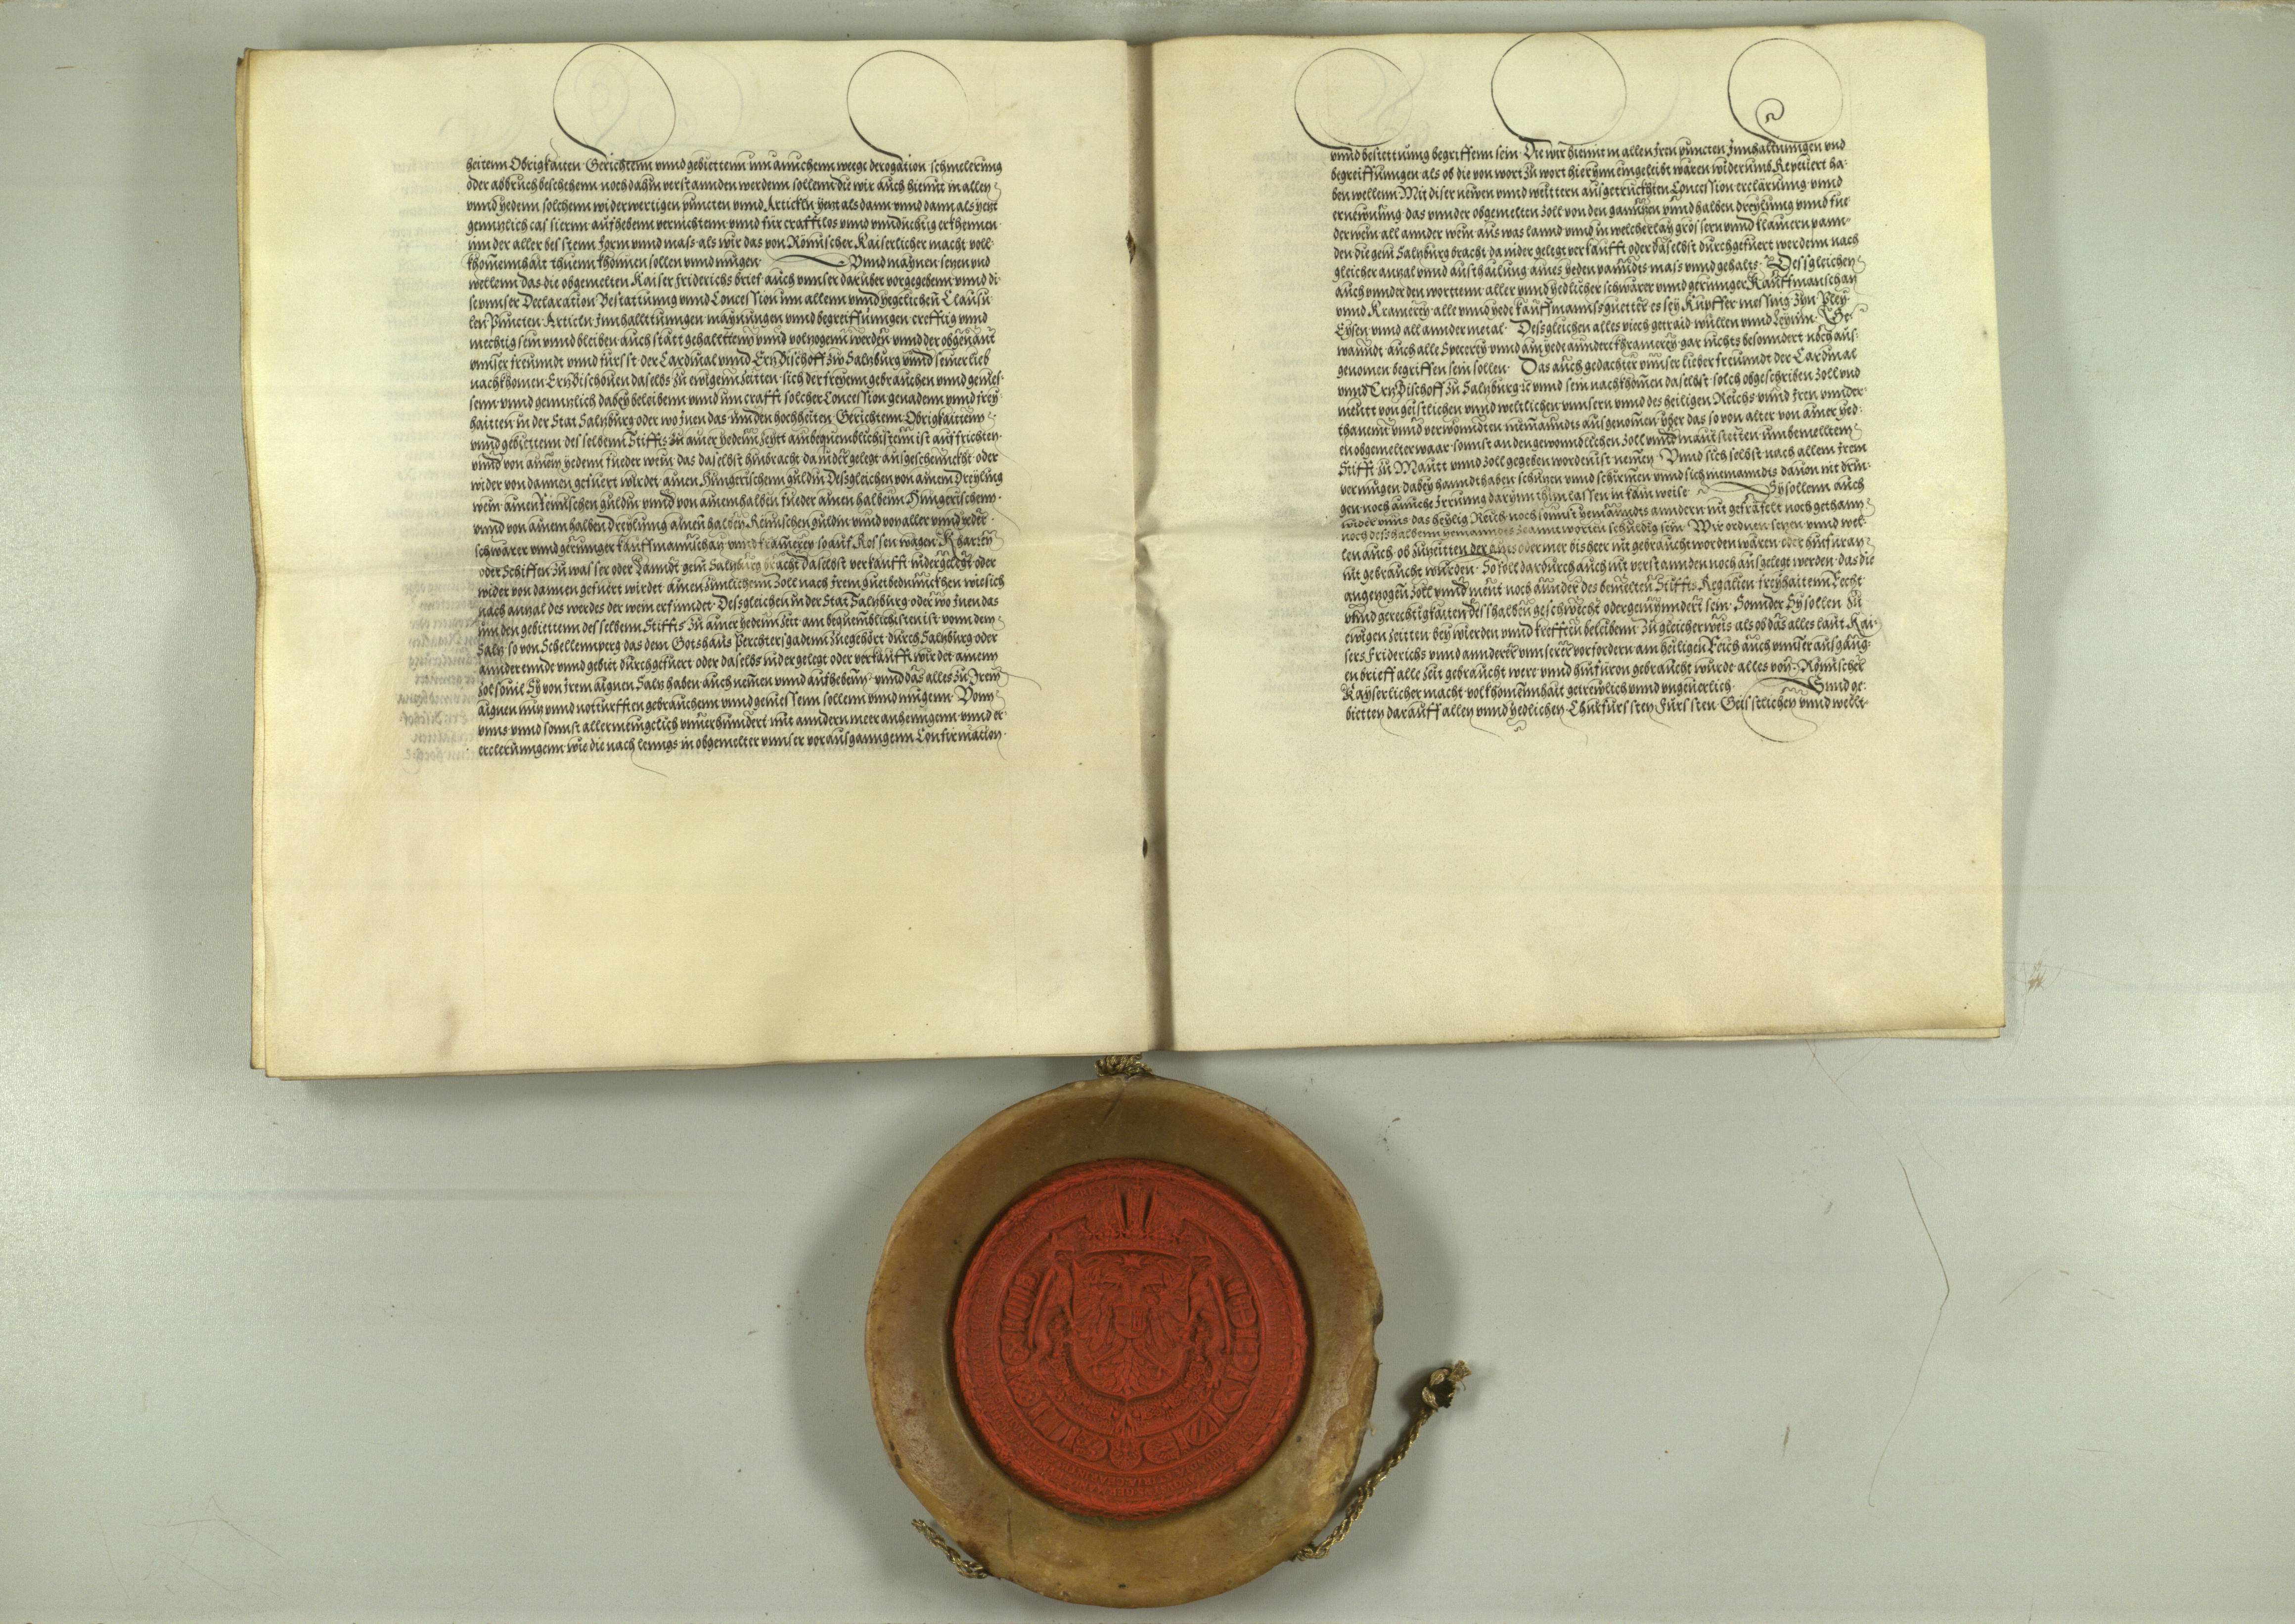 heitenn Obrigkaiten Gerichtenn vnnd gebiettenn inn ainichenn weege derogation schmelerung
oder abbruch beschehenn noch dahin verstannden werdenn sollenn die wir auch hiemit in allen
vnnd yedenn solchenn widerwertigen puncten vnnd Artickln yetzt als dann vnnd dann als yetzt
genntzlich cassiernn aufhebenn vernichtenn vnnd für crafftlos vnnd vnndüchtig erkhennen
inn der aller bessten form vnnd mass als wir das von Römischer Kaiserlicher macht voll-
khomennhait thuenn khönnen sollen vnnd mügen Vnnd maynen setzen vnd
wellenn das die obgemelten Kaiser Friderichs brief auch vnnser darüber vorgegebenn vnnd di-
se vnnser Declaration Bestättüung vnnd Concession inn allenn vnnd yegclichen Clausu-
len Puncten Articln Innhalltünngen maynüngen vnnd begreiffüungen creftig vnnd
mechtig sein vnnd bleiben auch statt gehalttenn vnnd volntzogenn werden vnnd der obgenant
vnnser freunndt vnnd fürsst der Cardinal vnnd Ertzbischoff zw Saltzburg vnnd seiner lieb
nachkhomen Ertzbischouen daselbs zu ewigenn Zeitten sich der freyenn gebrauchen vnnd genies-
senn vnnd genntzlich dabey beleibenn vnnd inn crafft solcher Concession genadenn vnnd frey-
haitten in der Stat Saltzburg oder wo Inen das inn den hochheiten Gerichtenn Obrigkaittenn
vnnd gebiettenn desselbenn Stiffts zu ainer yedenn Zeytt am bequemblichistenn ist aufrichten
vnnd von ainem yedenn fueder wein das daselbst hinbracht da nider gelegt ausgeschennckht oder
wider von dannen gefüert wirdet ainen Hungerischenn guldin Dessgleichen von ainem Dreyling
wein ainen Reinischen guldin vnnd von ainem halben fueder ainen halbenn Hungerischenn
vnnd von ainem halben Dreylinng ainen halben Reinischen guldin vnnd von aller vnnd yeder
schwärer vnnd geringer kauffmannschatz vnnd kramerey so auf Rossen wägen Kharrn
oder Schiffen zu wasser oder Lanndt genn Saltzburg bracht daselbst verkaufft nidergelegt oder
wider von dannen gefüert wirdet ainen zimlichenn Zoll nach Irem guetbedünnckhen wie sich
nach antzal des werdes der wein erfindet Dessgleichen in der Stat Saltzburg oder wo Inen das
inn den gebiettenn desselbenn Stiffts zu ainer yedenn Zeit am bequemblichisten ist vonn dem
Saltz so von Schellennperg das dem Gotshaus Perchtersgadenn zuegehört durch Saltzburg oder
annder ennde vnnd gebiet durchgefuert oder daselbs nidergelegt oder verkaufft wirdet ainenn
Zol souil Sy von Irem aignen Saltz haben auch nemen vnnd aufhebenn vnnd das alles zu Iren
aignen nutz vnnd notturfften gebrauchenn vnnd geniessenn sollenn vnnd mügenn Vonn
vnns vnnd sonnst allermenigclich vnuerhindert mit anndern meer anhenngenn vnnd er-
erclerunngenn wie die nach lenngs in obgemelter vnnser vorausganngenn Confirmation
vnnd bestettüung begriffenn sein Die wir hiemit in allen Iren puncten Innhaltunngen vnd
begreiffüngen als ob die von wort zu wort hieryn eingeleibt wären widerumb Repetiert ha-
ben wellenn Mit diser newen vnnd weittern ausgetruckhten Concession erclärüng vnnd
ernewüng das vnnder obgemelten Zoll von den ganntzen vnnd halben dreylinng vnnd fue-
derwein all annder wein aus was lannd vnnd in welcherlay grössern vnnd klainern pann-
den die genn Saltzburg bracht da nider gelegt verkaufft oder daselbst durchgefüert werdenn nach
gleicher antzal vnnd austhailung aines yeden panndts mass vnnd gehalts Dessgleichen
auch vnnder den worttenn aller vnnd yedlicher schwärer vnnd geringer Kauffmanschatz
vnnd Kramerey alle vnnd yede kauffmannssguetter es sey Kupffer messing Zyn Pley
Eysen vnnd all annder metal Dessgleichen alles viech getraid wullen vnnd Leynin Ge-
wanndt auch alle Specerey vnnd ain yede annder khramerey gar nichts besonndert noch aus-
genomen begriffen sein sollen Das auch gedachter vnnser lieber freunndt der Cardinal
vnnd Ertzbischoff zu Saltzburg ꝛc vnnd sein nachkhomen daselbst solch obgeschriben Zoll vnd
meutt von geistlichen vnnd weltlichen vnnsern vnnd des heiligen Reichs vnnd Iren vnnder-
thanenn vnnd verwonndten niemanndts ausgenomen vber das so von alter von ainer yed-
en obgemelter waar sonnst an den gewonndlichen Zoll vnnd mautstetten inn bemelltem
Stifft zu Mautt vnnd Zoll gegeben worden ist nemen Vnnd sich selbst nach allem Irem
vermügen dabey hanndthaben schützen vnnd schirmen vnnd sich niemanndts dauon nit drin-
gen noch ainiche Irrung darynn thün lassen in kain weise Sy sollenn auch
wider vnns das heylig Reich noch sonnst yemanndts anndern nit gefräfelt noch gethann
noch desshalbenn yemanndts zeanntworten schuldig sein Wir ordnen setzen vnnd wel-
len auch ob zuzeitten der ains oder mer bisheer nit gebraucht worden wären oder hinfüran
nit gebraucht wurden So soll dardurch auch nit verstannden noch ausgelegt werden das die
angetzogen Zoll vnnd meut noch annder des bemelten Stiffts Regalien freyhaitenn Recht
vnnd gerechtigkaiten desshalben geschwecht oder geminndert sein Sonnder Sy sollen zu
ewigen Zeitten bey wierden vnnd krefften beleibenn zu gleicherweis als ob das alles laut Kai-
sers Friderichs vnnd annderer vnnserer vorfordern am heiligen Reich auch vnnser ausgang-
en brieff alle Zeit gebraucht were vnnd hinfüron gebraucht wurde alles von Römischer
Kayserlicher macht volkhomennhait getrewlich vnnd vngeuerlich Vnnd ge-
bietten darauff allen vnnd yedlichen Churfürssten Fürssten Geisstlichen vnnd wellt-